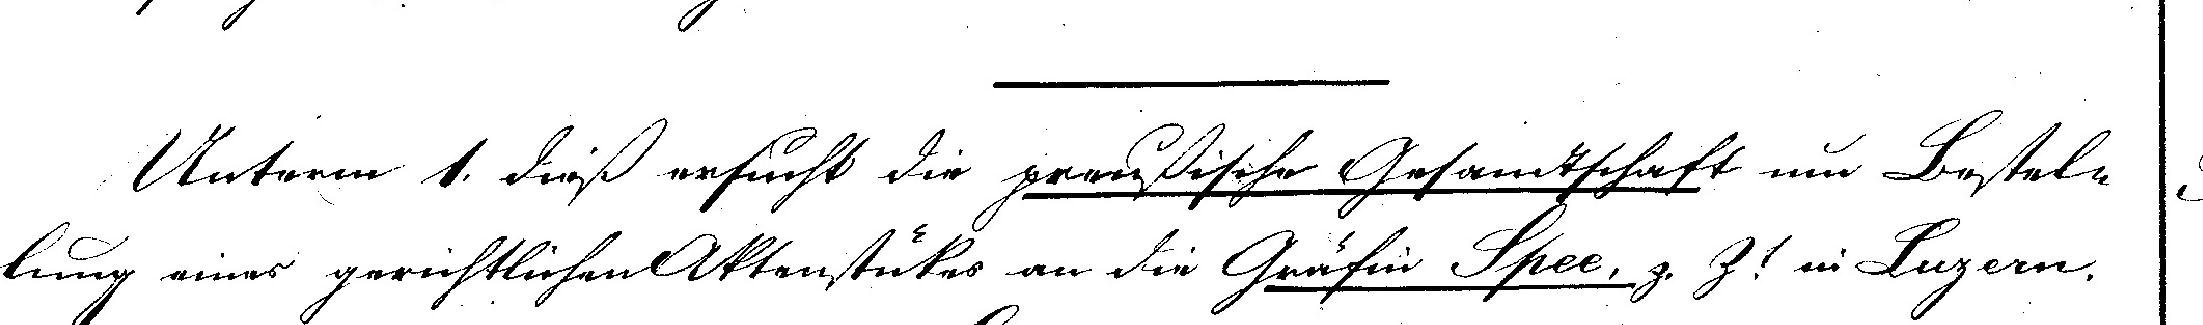 Unterm 1. dieß ersucht die preußische Gesandtschaft um Bestel-
lung eines gerichtlichen Aktenstükes an die Gräfin Spee, z. Zt. in Luzern.